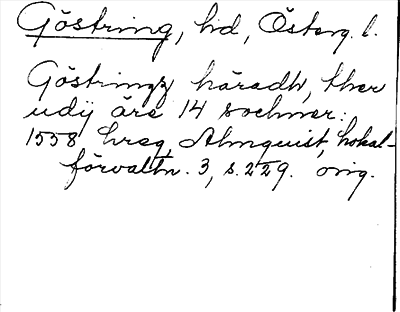 Göstring, hd, Österg. l.
Göstringz häradh, ther
udij äre 14 sochner.
1558 hreg, Almquist, Lokal-
förvaltn. 3, s. 229. orig.